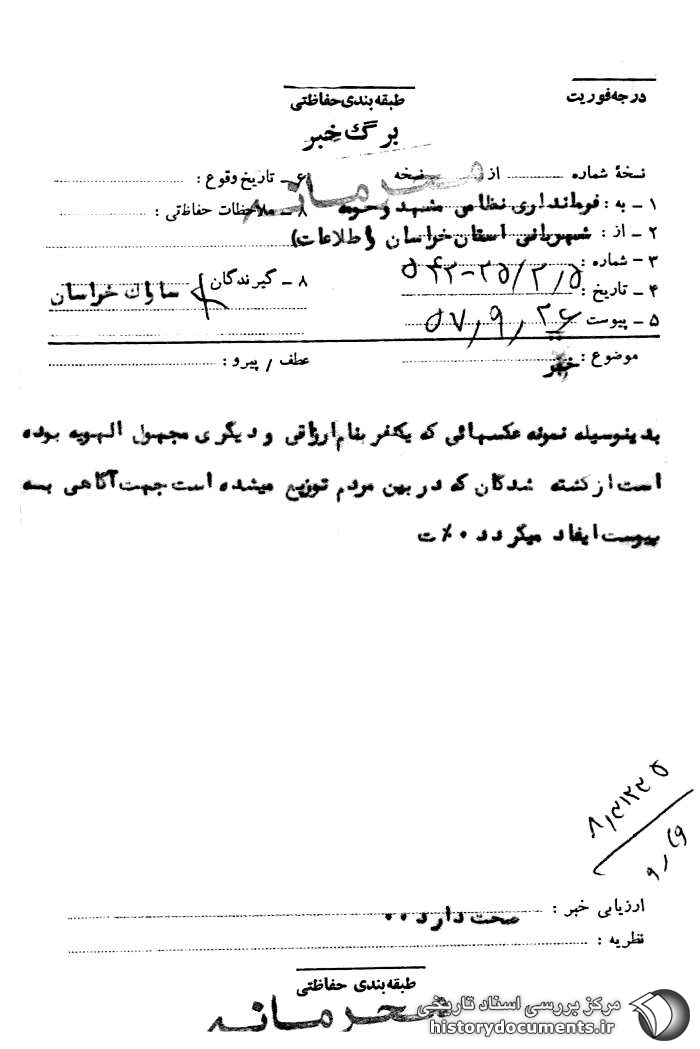 درجه فوریت
طبقه بندی حفاظتی
برگ خبر
نسخهٔ شماره از نسخه
۶ – تاریخ وقوع :
محرمانه
۱ – به : فرمانداری نظامی مشهد وحومه
۸ – ملاحظات حفاظتی :
۲ – از : شهربانی استان خراسان (اطلاعات)
۳ – شماره : ۵/۳/۳۵-۵۴۲
۸ – گیرندگان ساواک خراسان
۴ – تاریخ : ۵۷٫۹٫۲۶
۵ – پیوست
موضوع : خبر
عطف / پیرو :
بدینوسیله نمونه عکسهائی که یکنفر بنام ارزاقی و دیگری مجهول الهویه بوده
است از کشته شدگان که در بین مردم توزیع میشده است جهت آگاهی به
پیوست ایفاد میگردد ۰٪ ت
ارزیابی خبر : صحت دارد ۰۰
نظریه :
طبقه بندی حفاظتی
محرمانه
مرکز بررسی اسناد تاریخی
historydocuments.ir